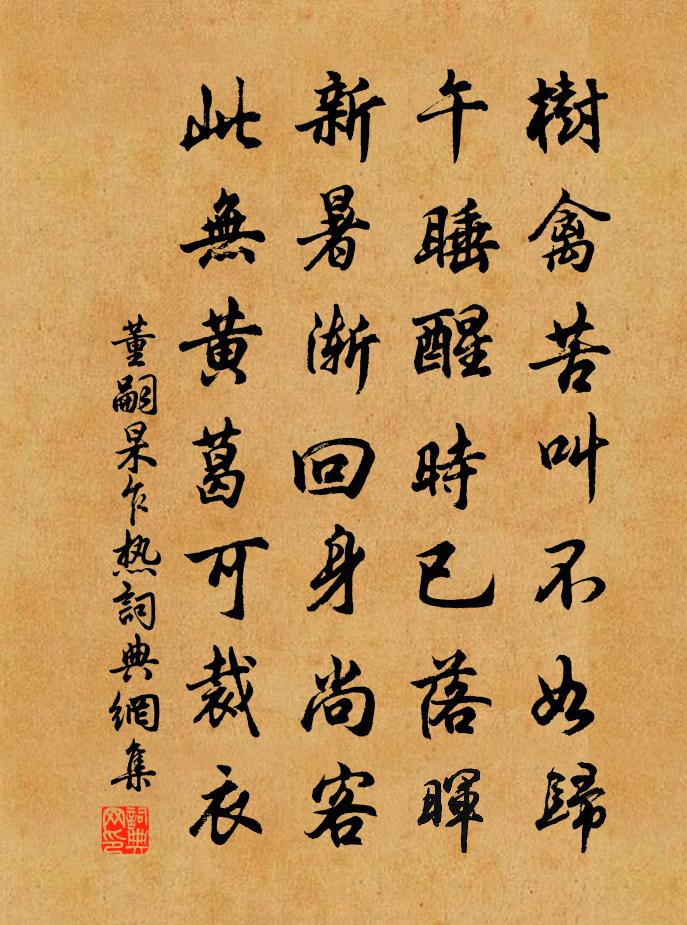 樹禽苦叫不如歸
午睡醒時已落暉
新暑漸回身尚客
此無黃葛可裁衣
董嗣杲乍熱詞典網集
詞典網印